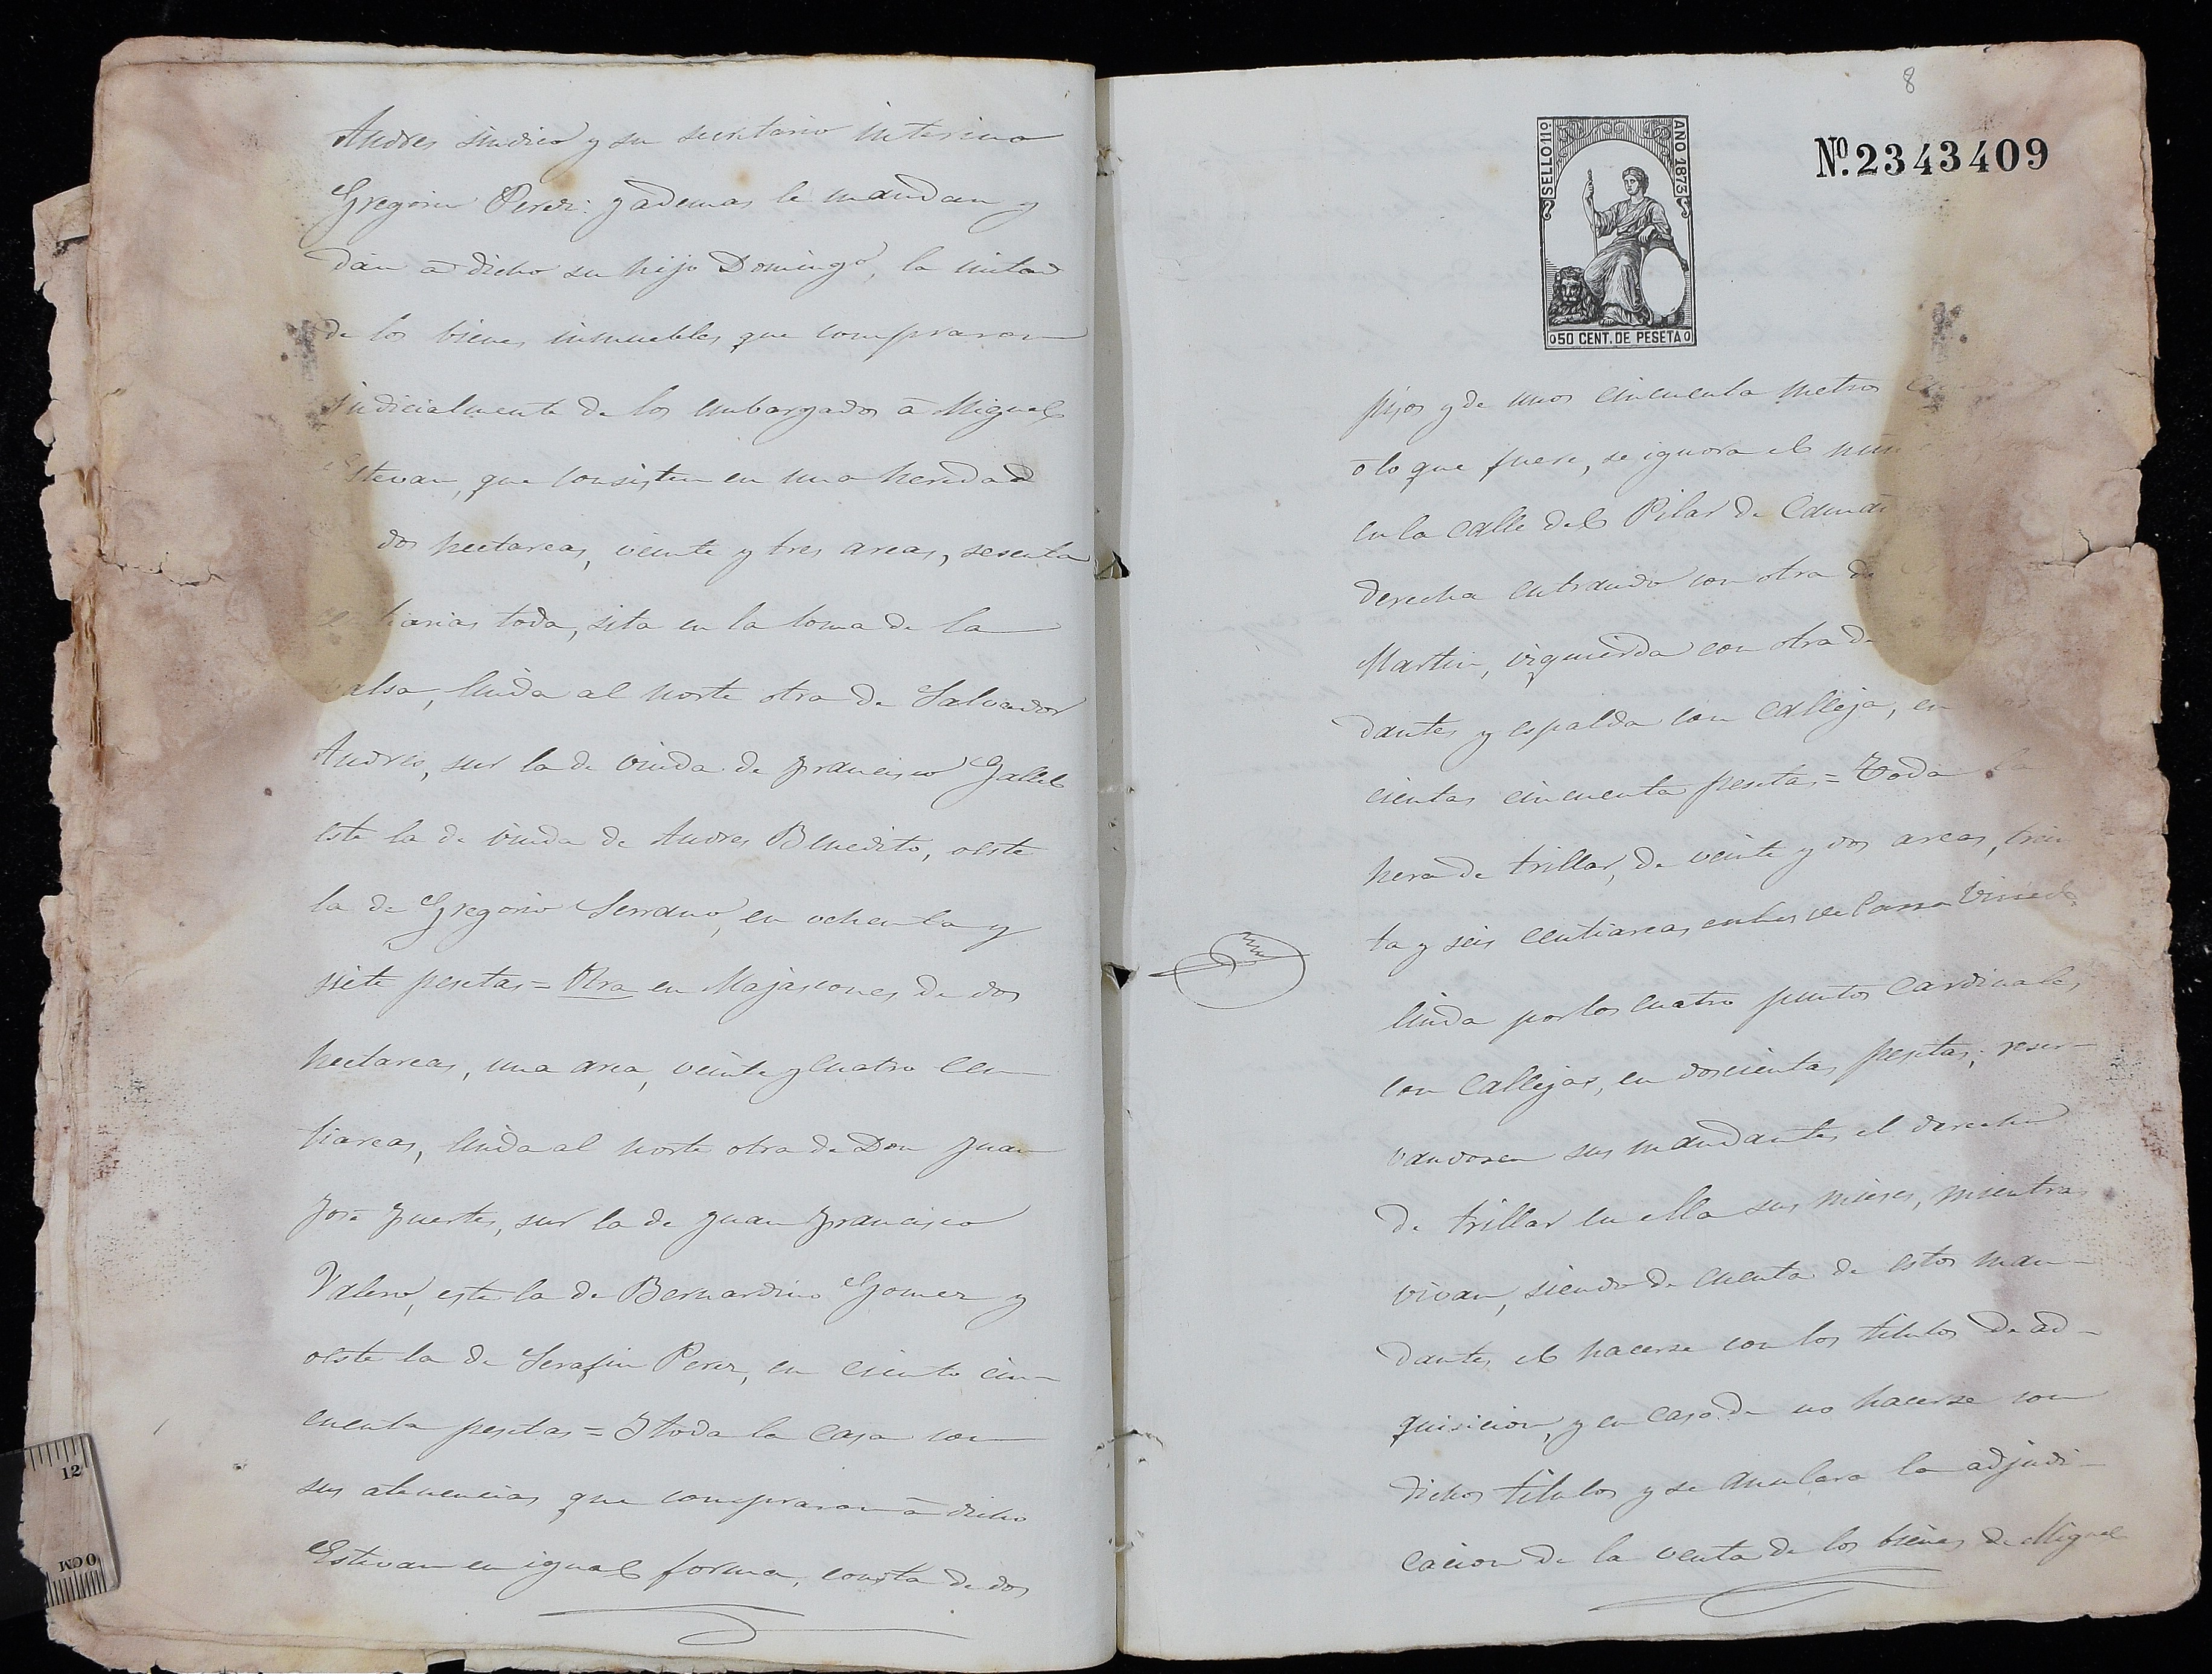 Andres sindico y su secretario interino
Gregorio Perez: y ademas le mandan y
dán á dicho su hijo Domingo, la mitad
de los bienes inmuebles que compraron
judicialmente de los embargados á Miguel
Estevan, que consisten en una heredad
dos hectareas, veinte y tres areas, sesenta
toda, sita en la loma de la
balsa, linda al norte otra de Salvador
Andres, sur la de viuda de Francisco Gallel
este la de viuda de Andres Benedito, oeste
la de Gregorio Serrano, en ochenta y
siete pesetas = Otra en Majascones de dos
hectareas, una area, veinte y cuatro cen
tiareas, linda al norte otra de Don Juan
José Fuertes, sur la de Juan Francisco
Valero, este la de Bernardino Gomez y
oeste la de Serafin Perez, en ciento cin-
cuenta pesetas = Y toda la casa con
sus atenencias que compraron á dicho
Estevan en igual forma, consta de dos
8
SELLO 11º
AÑO 1873
50 CENT. DE PESETA
Nº. 2343409
pisos y de unos cincuenta metros
ó lo que fuere, se ignora el
en la calle del Pilar de
derecha entrando con otra de
Martin, izquierda con otra de
dantes y espalda con calleja, en
cientas cincuenta pesetas = Toda la
hera de trillar, de veinte y dos areas, trein
ta y seis centiareas,
linda por los cuatro puntos cardinales
con callejas, en doscientas pesetas; reser-
vandose sus mandantes el derecho
de trillar en ella sus mieses, mientras
vivan, siendo de cuenta de estos man-
dantes el hacerse con los titulos de ad-
quisicion, y en caso de no hacerse con
dichos titulos y se anulara la adjudi-
cacion de la venta de los bienes de Miguel